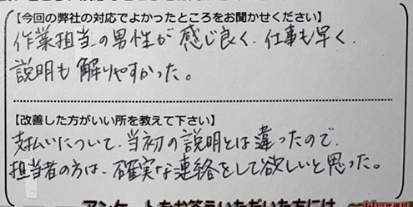 【今回の弊社の対応でよかったところをお聞かせください】
作業担当の男性が感じ良く、仕事も早く、
説明も解りやすかった。
【改善した方がいい所を教えて下さい】
支払いについて、当初の説明とは違ったので、
担当者の方は、確実な連絡をして欲しいと思った。
アンケートをお答えいただいた方には